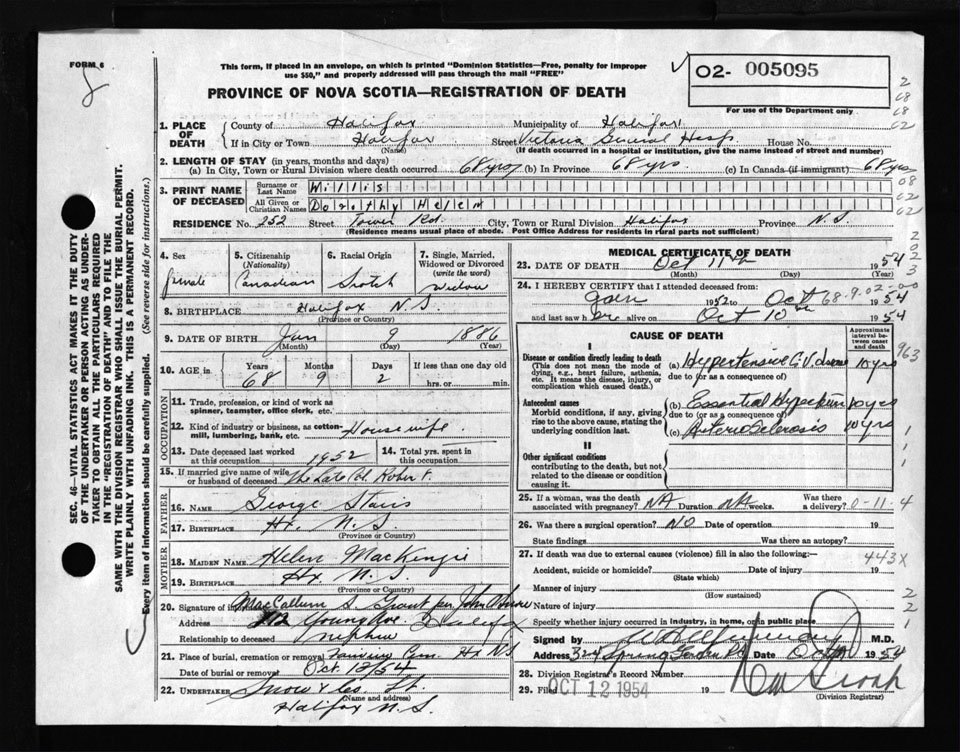 FORM 6
This form, if placed in an envelope, on which is printed "Dominion Statistics—Free, penalty for improper
use $50," and properly addressed will pass through the mail "FREE"
02- 005095
For use of the Department only
PROVINCE OF NOVA SCOTIA—REGISTRATION OF DEATH
SEC. 46 - VITAL STATISTICS ACT MAKES IT THE DUTY
OF THE UNDERTAKER OR PERSON ACTING AS UNDER-
TAKER TO OBTAIN ALL THE PARTICULARS REQUIRED
IN THE "REGISTRATION OF DEATH" AND TO FILE THE
SAME WITH THE DIVISION REGISTRAR WHO SHALL ISSUE THE BURIAL PERMIT.
WRITE PLAINLY WITH UNFADING INK. THIS IS A PERMANENT RECORD.
Every item of information should be carefully supplied. (See reverse side for instructions.)
1. PLACE OF DEATH
County of Halifax Municipality of Halifax
If in City or Town Halifax Street Victoria General Hosp House No.
(Name) (If death occurred in a hospital or institution, give the name instead of street and number)
2. LENGTH OF STAY (in years, months and days)
(a) In City, Town or Rural Division where death occurred 68 yrs (b) In Province 68 yrs (c) In Canada (if immigrant) 68 yrs
3. PRINT NAME OF DECEASED
Surname or Last Name Willis
All Given or Christian Names Dorothy Helen
RESIDENCE No. 252 Street Tower Rd. City, Town or Rural Division Halifax Province N.S.
(Residence means usual place of abode. Post Office Address for residents in rural parts not sufficient)
4. Sex female
5. Citizenship (Nationality) Canadian
6. Racial Origin Scotch
7. Single, Married, Widowed or Divorced (write the word) Widow
8. BIRTHPLACE Halifax N.S.
(Province or Country)
9. DATE OF BIRTH Jan 9 1886
(Month) (Day) (Year)
10. AGE in Years 68 Months 9 Days 2 If less than one day old hrs. or min.
OCCUPATION
11. Trade, profession, or kind of work as spinner, teamster, office clerk, etc.
12. Kind of industry or business, as cotton-mill, lumbering, bank, etc. Housewife
13. Date deceased last worked at this occupation 1952
14. Total yrs. spent in this occupation
15. If married give name of wife or husband of deceased The late Col. Robert F.
FATHER
16. Name George Stairs
17. Birthplace Hx. N.S.
(Province or Country)
MOTHER
18. MAIDEN NAME Helen MacKenzie
19. BIRTHPLACE Hx. N.S.
(Province or Country)
20. Signature of MacCallum S. Grant per John
Address Young Ave. Halifax
Relationship to deceased nephew
21. Place of burial, cremation or removal Cem. Hx N.S
Date of burial or removal Oct. 12/54
22. UNDERTAKER Snow & Co. Lt.
(Name and address)
Halifax N.S.
MEDICAL CERTIFICATE OF DEATH
23. DATE OF DEATH Oct 11th 1954
(Month) (Day)
24. I HEREBY CERTIFY that I attended deceased from
Jan 1952 to Oct 1954
and last saw her alive on Oct 10th 1954
CAUSE OF DEATH
Approximate interval between onset and death
I
Disease or condition directly leading to death
(This does not mean the mode of dying, e.g., heart failure, asthenia, etc. It means the disease, injury, or complication which caused death.)
(a) Hypertensive C.V. disease 10 yrs
due to (or as a consequence of)
Antecedent causes
Morbid conditions, if any, giving rise to the above cause, stating the underlying condition last.
(b) Essential Hypertension 10 yrs
due to (or as a consequence of)
(c) Arterio Sclerosis 10 yrs
II
Other significant conditions
contributing to the death, but not related to the disease or condition causing it.
25. If a woman, was the death associated with pregnancy? NA Duration NA weeks. Was there a delivery?
26. Was there a surgical operation? NO Date of operation 19
State findings Was there an autopsy?
27. If death was due to external causes (violence) fill in also the following:—
Accident, suicide or homicide? Date of injury 19
(State which)
Manner of injury
(How sustained)
Nature of injury
Specify whether injury occurred in industry, in home, or in public place
Signed by M.D.
Address 324 Spring Garden Rd Date Oct 1954
28. Division Registrar's Record Number
29. Filed OCT 12 1954 19
(Division Registrar)
68-9-02-00
963
0-11-4
443X